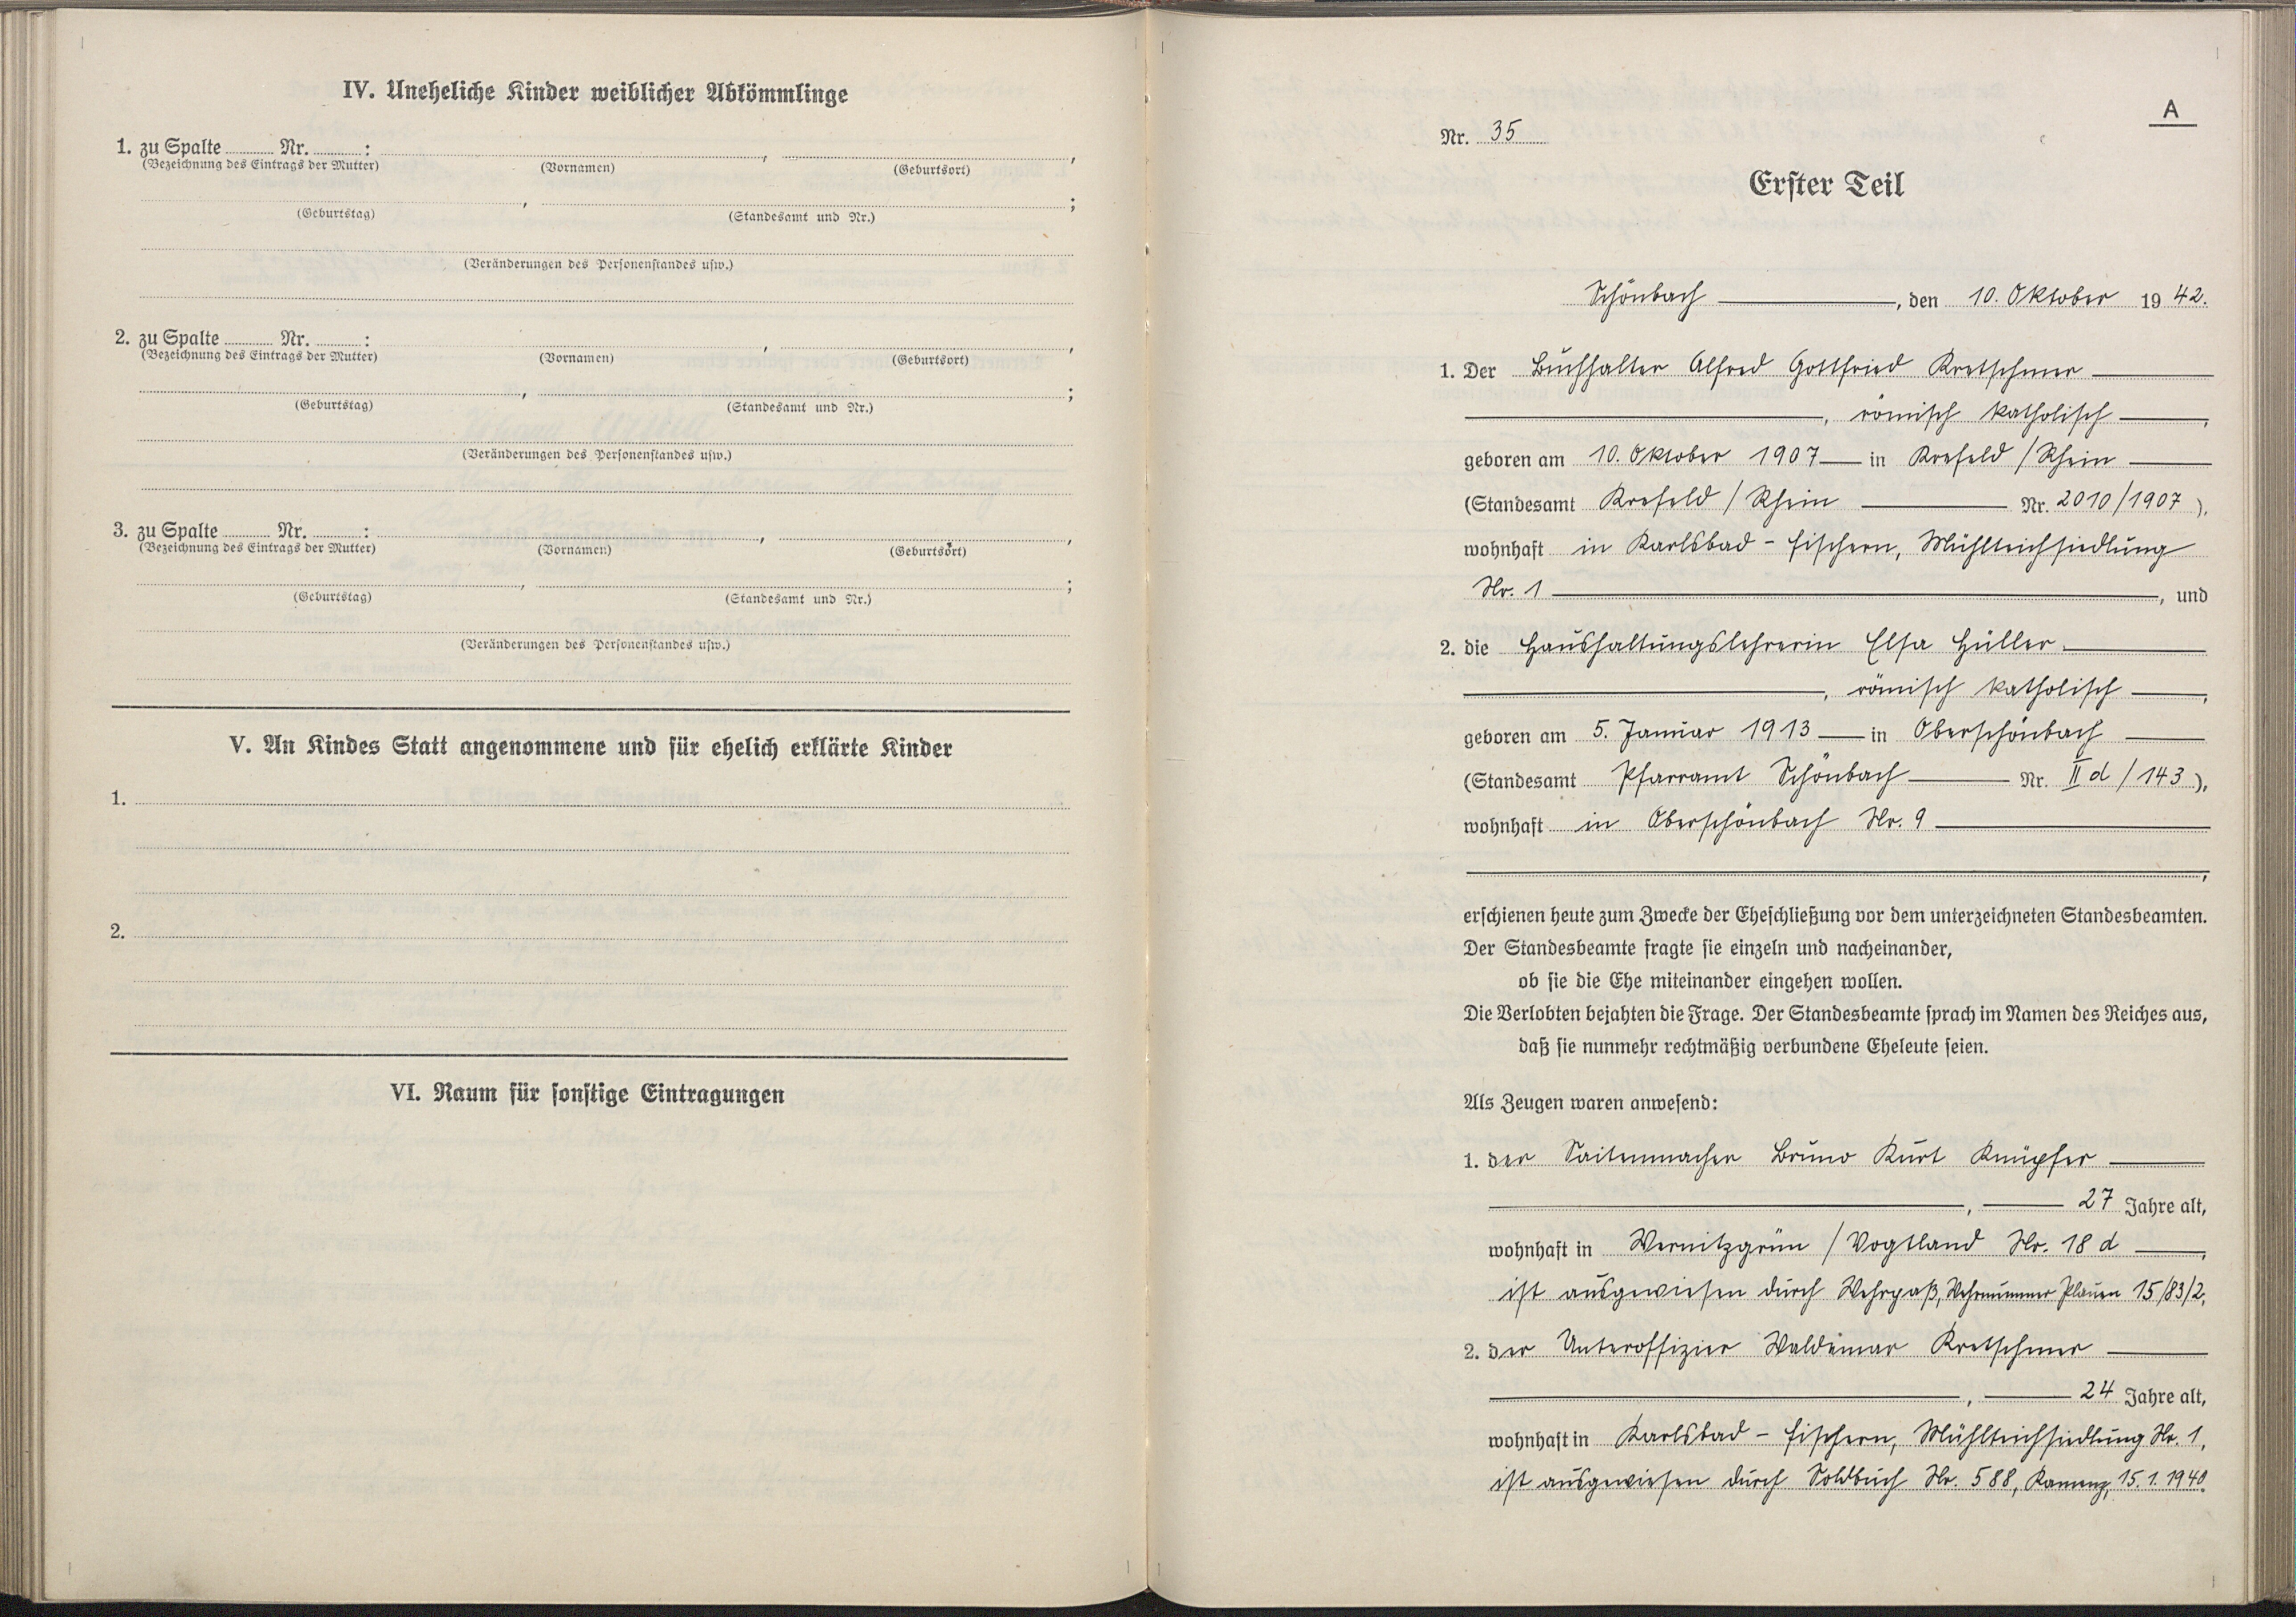 IV. Uneheliche Kinder weiblicher Abkömmlinge
1. zu Spalte Nr. : , ,
(Bezeichnung des Eintrags der Mutter) (Vornamen) (Geburtsort)
, ;
(Geburtstag) (Standesamt und Nr.)
(Veränderungen des Personenstandes usw.)
2. zu Spalte Nr. : , ,
(Bezeichnung des Eintrags der Mutter) (Vornamen) (Geburtsort)
, ;
(Geburtstag) (Standesamt und Nr.)
(Veränderungen des Personenstandes usw.)
3. zu Spalte Nr. : , ,
(Bezeichnung des Eintrags der Mutter) (Vornamen) (Geburtsort)
, ;
(Geburtstag) (Standesamt und Nr.)
(Veränderungen des Personenstandes usw.)
V. An Kindes Statt angenommene und für ehelich erklärte Kinder
1.
2.
VI. Raum für sonstige Eintragungen
A
Nr. 35
Erster Teil
Schönbach, den 10. Oktober 1942.
1. Der Buchhalter Alfred Gottfried Kretschmer
, römisch katholisch,
geboren am 10. Oktober 1907 in Krefeld / Rhein
(Standesamt Krefeld / Rhein Nr. 2010/1907),
wohnhaft in Karlsbad - Fischern, Mühlteichsiedlung
Nr. 1, und
2. die Haushaltungslehrerin Elsa Hüller
, römisch katholisch,
geboren am 5. Januar 1913 in Oberschönbach
(Standesamt Pfarramt Schönbach Nr. II d / 143),
wohnhaft in Oberschönbach Nr. 9
,
erschienen heute zum Zwecke der Eheschließung vor dem unterzeichneten Standesbeamten.
Der Standesbeamte fragte sie einzeln und nacheinander,
ob sie die Ehe miteinander eingehen wollen.
Die Verlobten bejahten die Frage. Der Standesbeamte sprach im Namen des Reiches aus,
daß sie nunmehr rechtmäßig verbundene Eheleute seien.
Als Zeugen waren anwesend:
1. der Saitenmacher Bruno Kurt Knüpfer
, 27 Jahre alt,
wohnhaft in Wernitzgrün / Vogtland Nr. 18 d,
ist ausgewiesen durch Wehrpaß, Wehrnummer Plauen 15/83/2,
2. der Unteroffizier Waldemar Kretschmer
, 24 Jahre alt,
wohnhaft in Karlsbad - Fischern, Mühlteichsiedlung Nr. 1,
ist ausgewiesen durch Soldbuch Nr. 588, Kamenz, 15.1.1940.